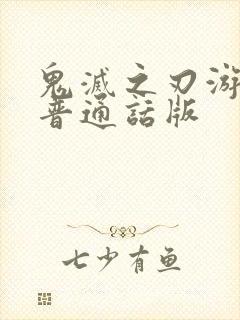 鬼滅之刃游
普通話版
七少有鱼